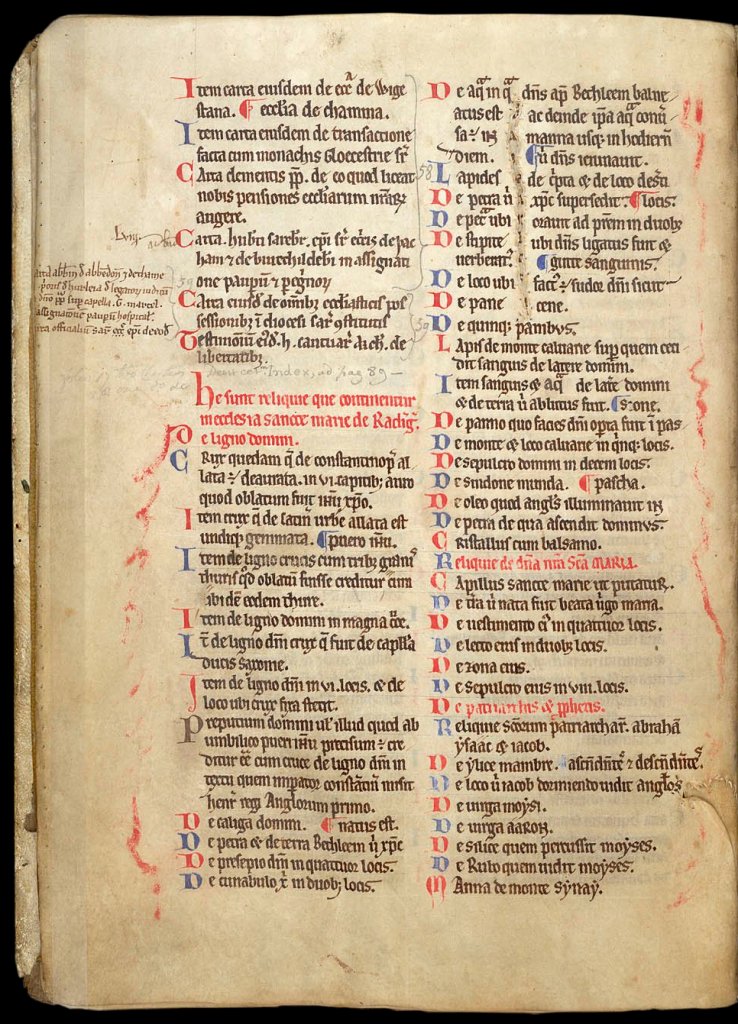 Item carta eiusdem de ecc̄a de Wige
stana. ¶ ecclia de chamma.
Item carta eiusdem de transactione
facta cum monachis Gloecestrie sr̄
Carta clementis pp̄. de eo quod liceat
nobis pensiones eccliarum nr̄arum
augere.
Carta. hub̄ti sarebr̄. ep̄i sr̄ eccīis de pac
ham et de burechildeb̄i in assignati
one paup̄um et pegͥnor
Carta eiusd̄ de om̄ibꝫ ecclasticis pos
sessionibꝫ ī diocesi sar̄ ꝯstitutis
Testimoniū eiꝰd̄. h. cantuar̄ arch. de
libertatibꝫ.
Index, ad pag 89 —
He sunt reliquie que continentur
in ecclesia sancte marie de Radinḡ.
De ligno domini.
Crux quedam q̄ de constantinop̄ al
lata et deaurata. in vi. capitibꝫ auro
quod oblatum fuit ih̄u xp̄o.
Item crux q̄ de latin̄ urbe allata est
undiqꝫ gemmata. ¶ puero ih̄u.
Item de ligno crucis cum tribꝫ granis
thuris qd̄ oblatū fuisse creditur cum
ibidē eodem thure.
Item de ligno domini in magna cͣce.
It̄ de ligno dn̄i crux q̄ fuit de capll̄a
ducis saxonie.
Item de ligno dn̄i in vi. locis. & de
loco ubi crux fixa stetit.
Preputium domini ul̄ illud quod ab
umbilico pueri ih̄u precisum et cre
ditur eē cum cruce de ligno dn̄i in
textu quem imperator constātin̄ misit
henr̄ regi Anglorum primo.
De caliga domini. ¶ natus est.
De petra & de terra Bechleem ū xp̄c
De presepio dn̄i in quattuor locis.
De cunabulo x̄ in duobꝫ locis.
De aq̄ in q̄ dn̄s ap̄ Bethleem balne
atus est ac deinde ip̄a aq̄ conū
sa et in manna usqꝫ in hodiern̄
diem. ¶ ū dn̄s ieiunauit.
Lapides de cͥpta & de loco desti
De petra ū xp̄c supersedit. ¶ locis.
De pet̄ ubi orauit ad pr̄em in duobꝫ
De stipite ubi dn̄s ligatus fuit &
uerberat̄. ¶ gutte sanguinis.
De loco ubi factꝰ et sudor dn̄i sicut
De pane cene.
De quinqꝫ panibus.
Lapis de monte caluarie sup̄ quem ceci
dit sanguis de latere domini.
Item sanguis & aq̄ de lat̄e domini
& de terra ū ablutus fuit. ¶ sione.
De panno quo facies dn̄i opta fuit ī pas
De monte & loco caluarie in qͥnqꝫ locis.
De sepulcro domini in decem locis.
De sindone munda. ¶ pascha.
De oleo quod angls̄ illuminauit in
De petra de qua ascendit dominus.
Cristallus cum balsamo.
Reliquie de dn̄a nr̄a sc̄a MARIA.
Capillus sancte marie ut putatur.
De t̄ra ū nata fuit beata ūgo maria.
De uestimento eiꝰ in quattuor locis.
De lecto eius in duobꝫ locis.
De zona eius.
De sepulcro eius in viii. locis.
De patriarchis & ppħetis.
Reliquie scōrum patriarchar̄. abrahā
ysaac & iacob.
De ylice mambre. ¶ ascendētes et descendētes.
De loco ū iacob dormiendo uidit anglos
De uirga moysi.
De uirga aaron.
De silice quem percussit moyses.
De Rubo quem uidit moyses.
Manna de monte synay.